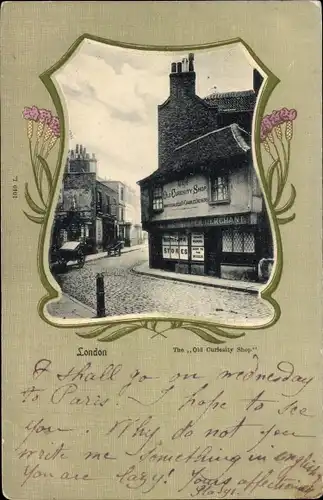 OLD CURIOSITY SHOP
IMMORTALISED BY CHARLES DICKENS
STORES
1010 L.
London
The „Old Curiosity Shop".
I shall go on wednesday
to Paris! I hope to see
you. Why do not you
write me something in english
You are lazy! yours affectionate
Gladys.